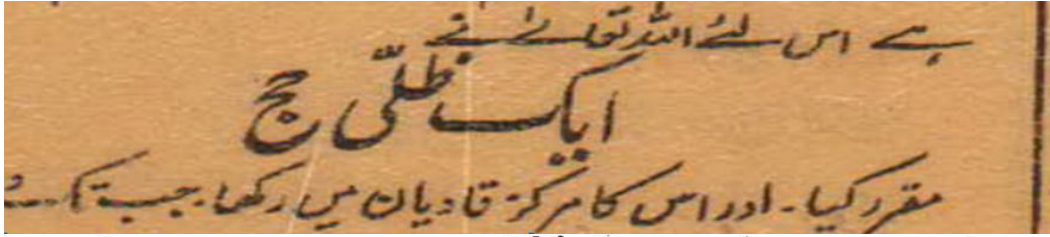 ہے اس لئے اللہ تعالےٰ نے
ایک ظلّی حج
مقرر کیا۔ اور اس کا مرکز قادیان میں رکھا۔ جب تک